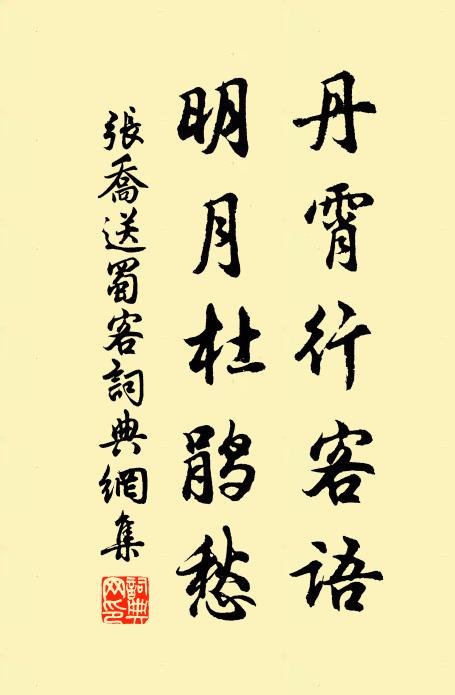 丹霄行客語
明月杜鵑愁
張喬送蜀客詞典網集
詞典网印